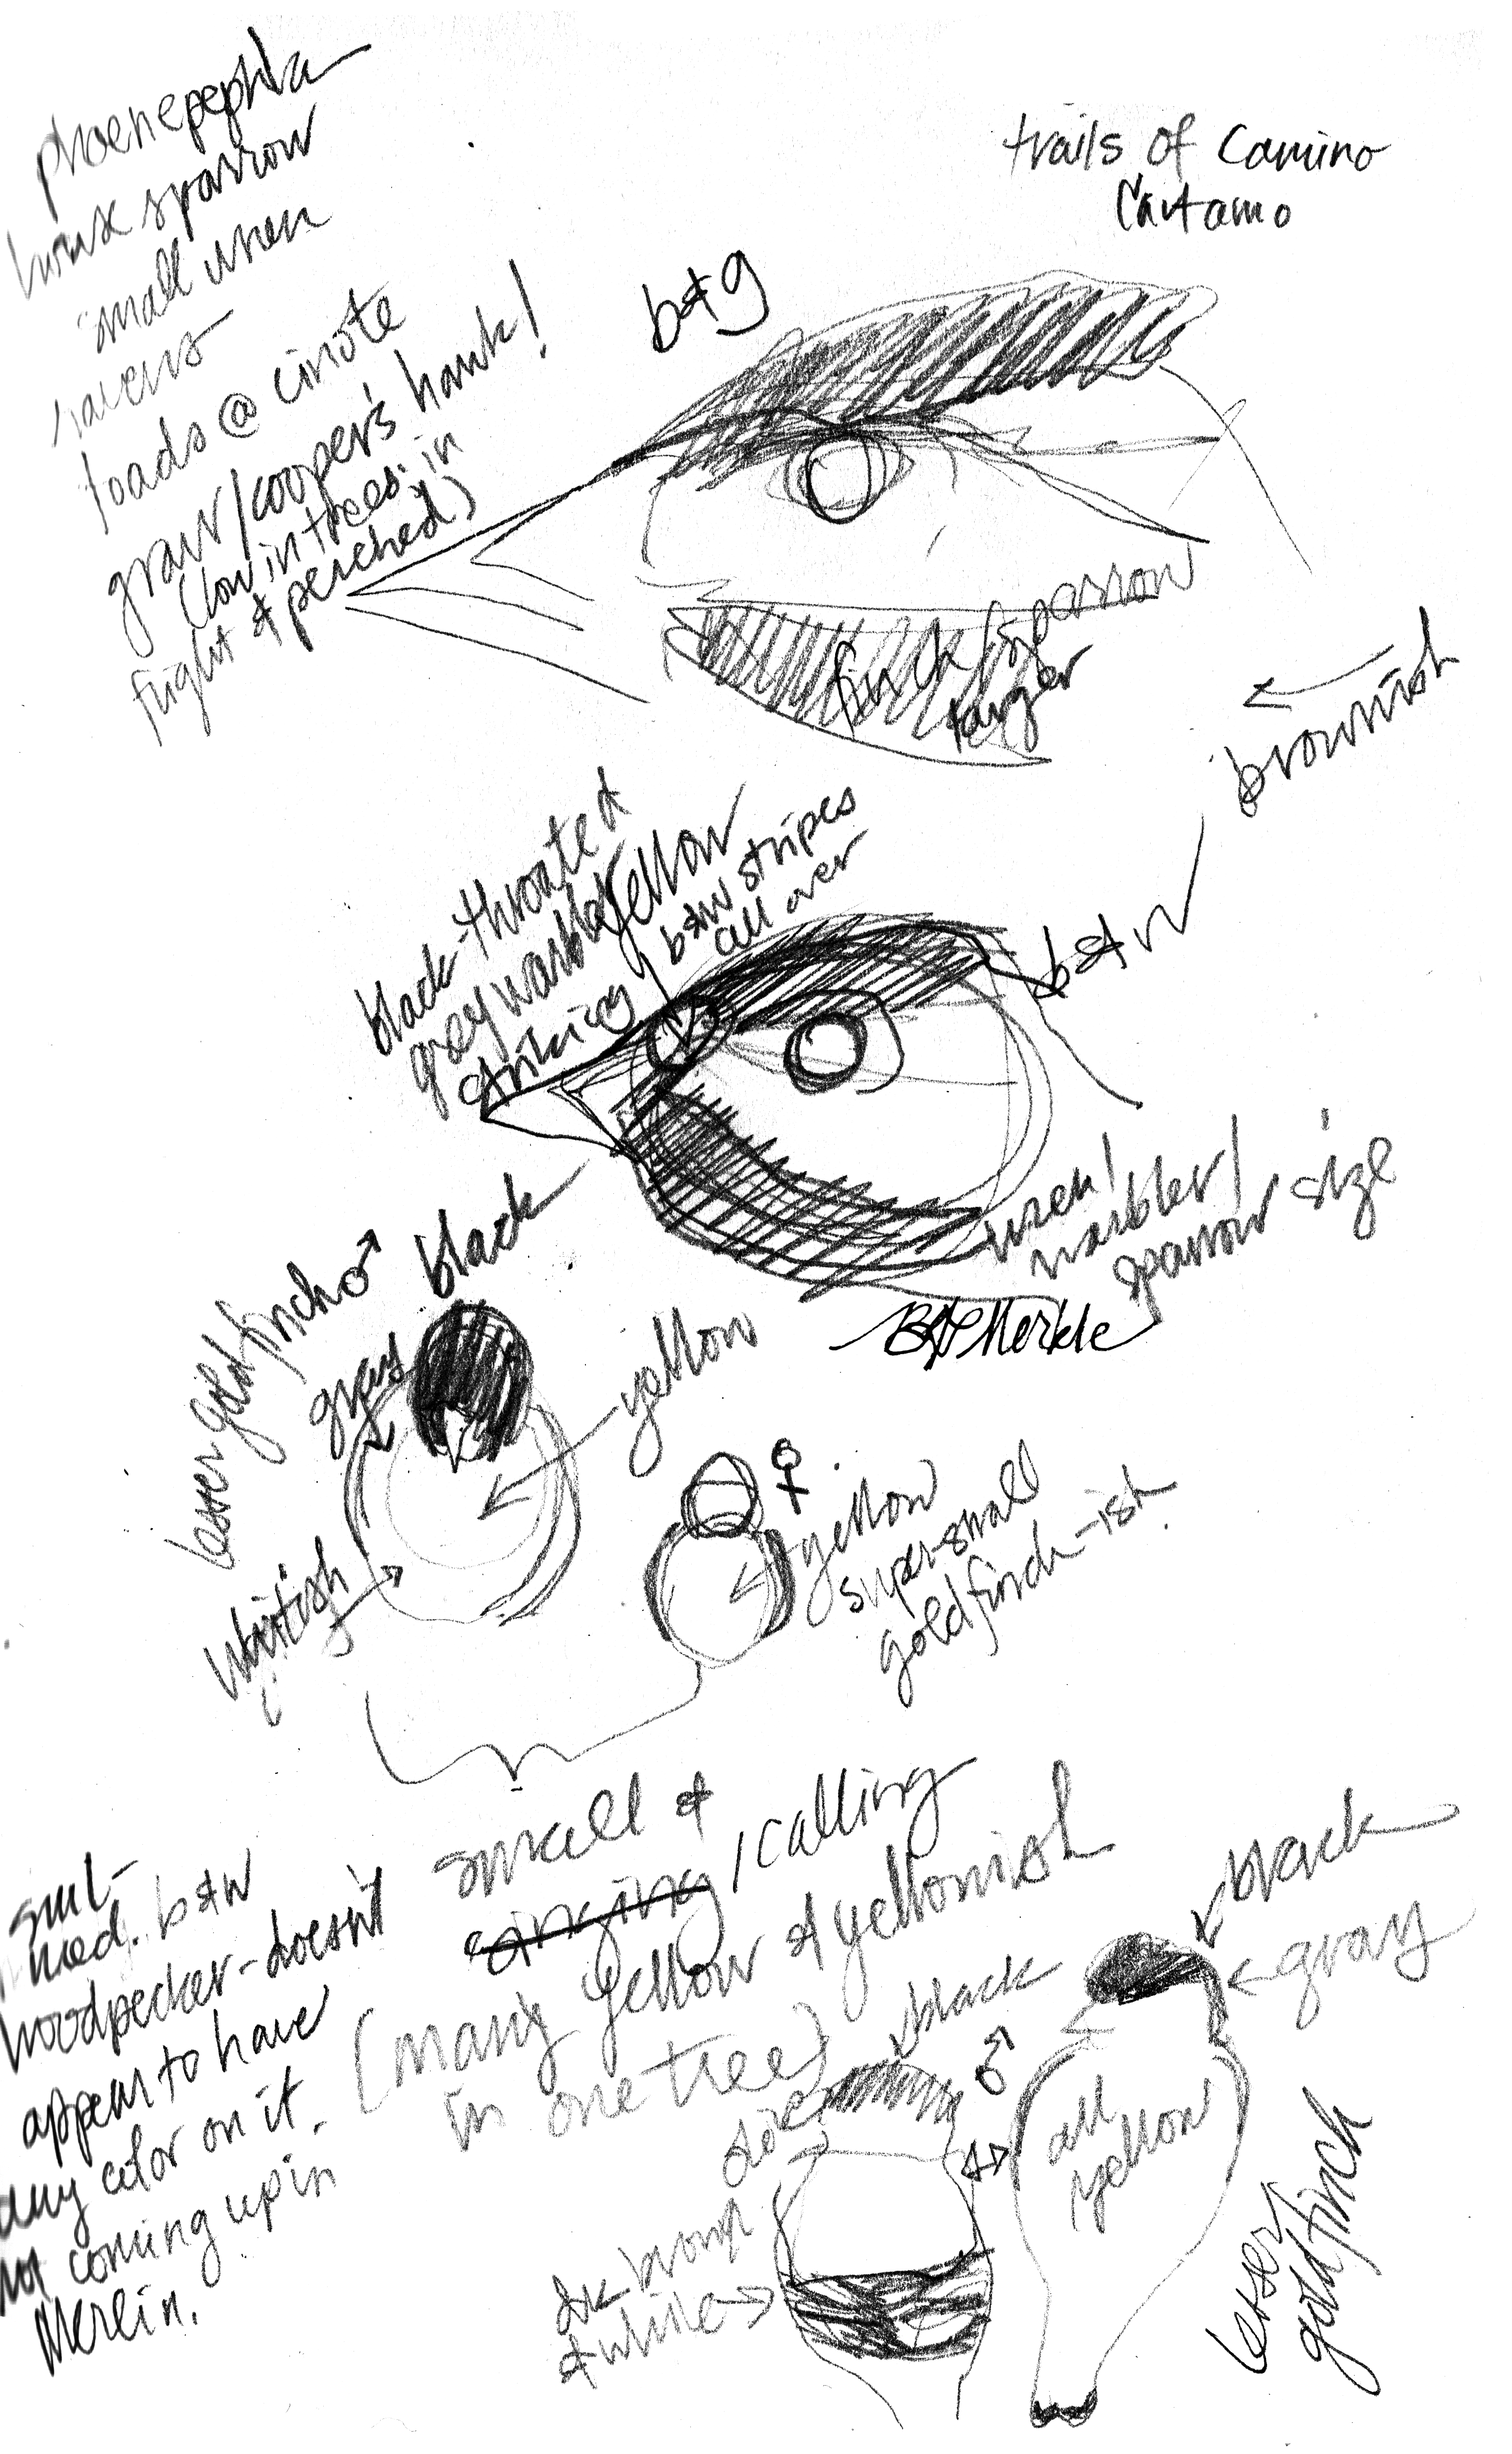 trails of Camino
house sparrow
small wren
ravens
loads @
/cooper's hawk!
(low in trees in
flight & perched)
b&g
finch/sparrow
larger
brownish
black-throated
grey warbler
striking
yellow
b&w stripes
all over
b&w
wren/
warbler/
sparrow size
black
BG Merkle
lesser goldfinch ♂
gray
yellow
whitish
♀
yellow
super small
goldfinch-ish
small &
singing/calling
(many yellow & yellowish
in one tree)
sml-
med. b&w
woodpecker-doesn't
appear to have
any color on it.
not coming up in
Merlin.
black
♂
dk brown
& white
black
gray
all
yellow
lesser
goldfinch